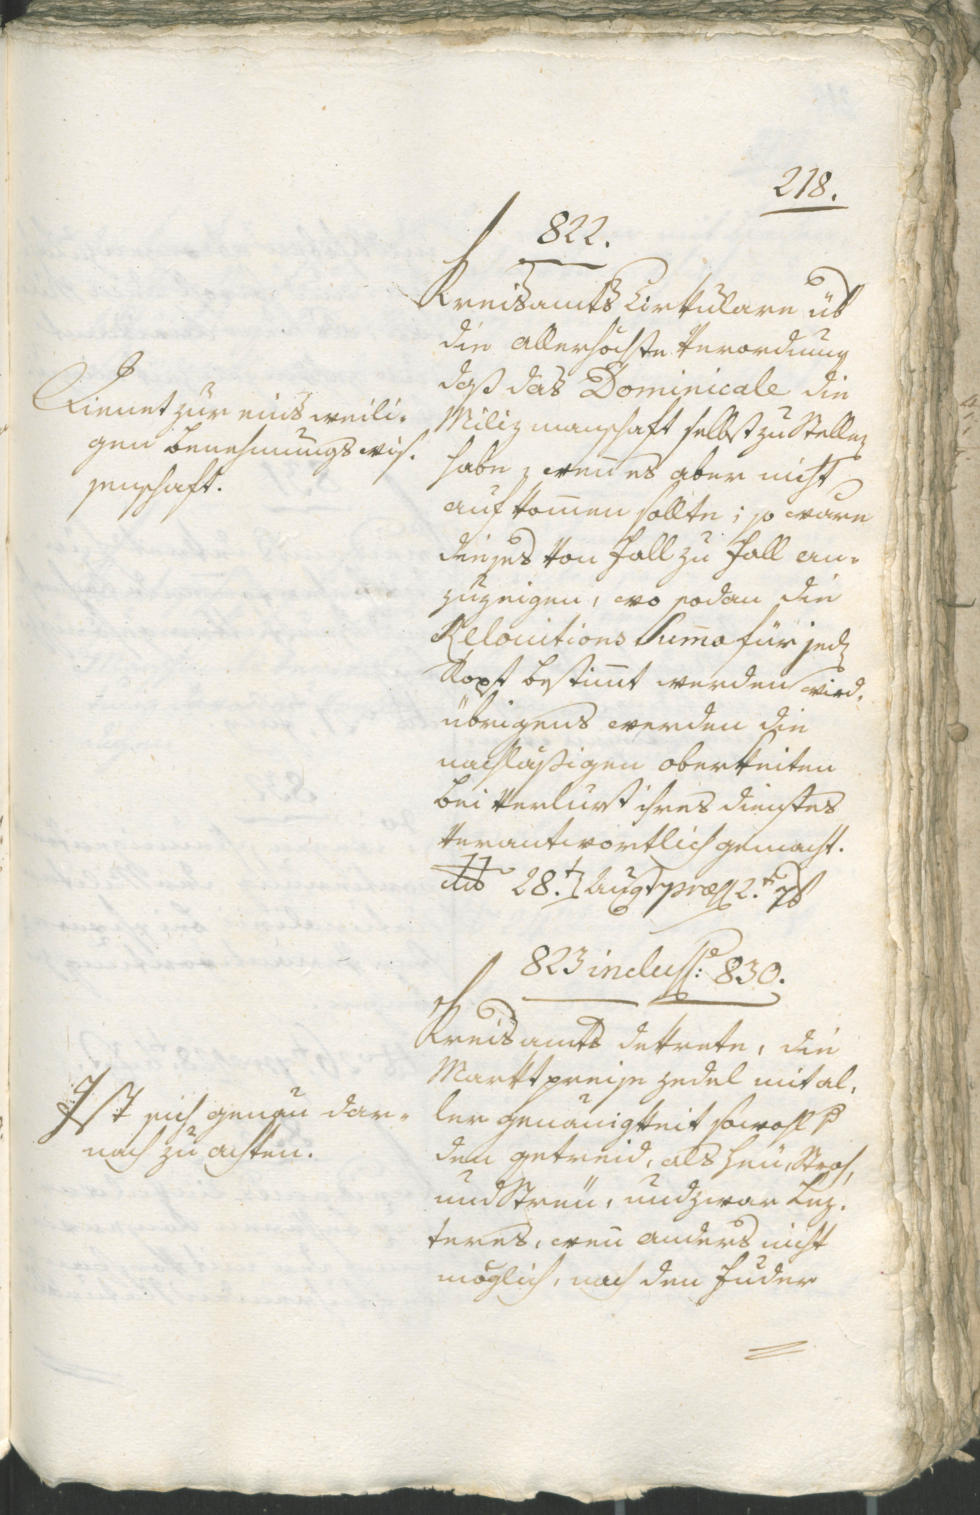 218.
822.
Kreisamts Cirkulare üb
die allerhöchste Verordnung
daß das Dominicale die
Miliz manschaft selbst zu Stellen
habe, wen̄ es aber nicht
aufkom̄en sollte; so wäre
dieses von Fall zu Fall an-
zuzeigen, wo sodan die
Reluitions Sum̄a für jedn
Kopf bestim̄t werden wird,
übrigens werden die
nachläßigen oberkeiten
bei Verlurst ihres dienstes
verantwortlich gemacht.
dto 28. Augt præs 2.t 7b
Dienet zur einsweili-
gen benehmungs wis-
senschaft.
823 incluss: 830.
Kreisamts dekrete, die
Marktpreise zedel mit al-
ler genauigkeit sowohl
den getreid, als Heü, Stroh,
und Streü, und zwar Lez-
teres, wen̄ anders nicht
möglich, nach den Fuder
Ist sich genau dar-
nach zu achten.